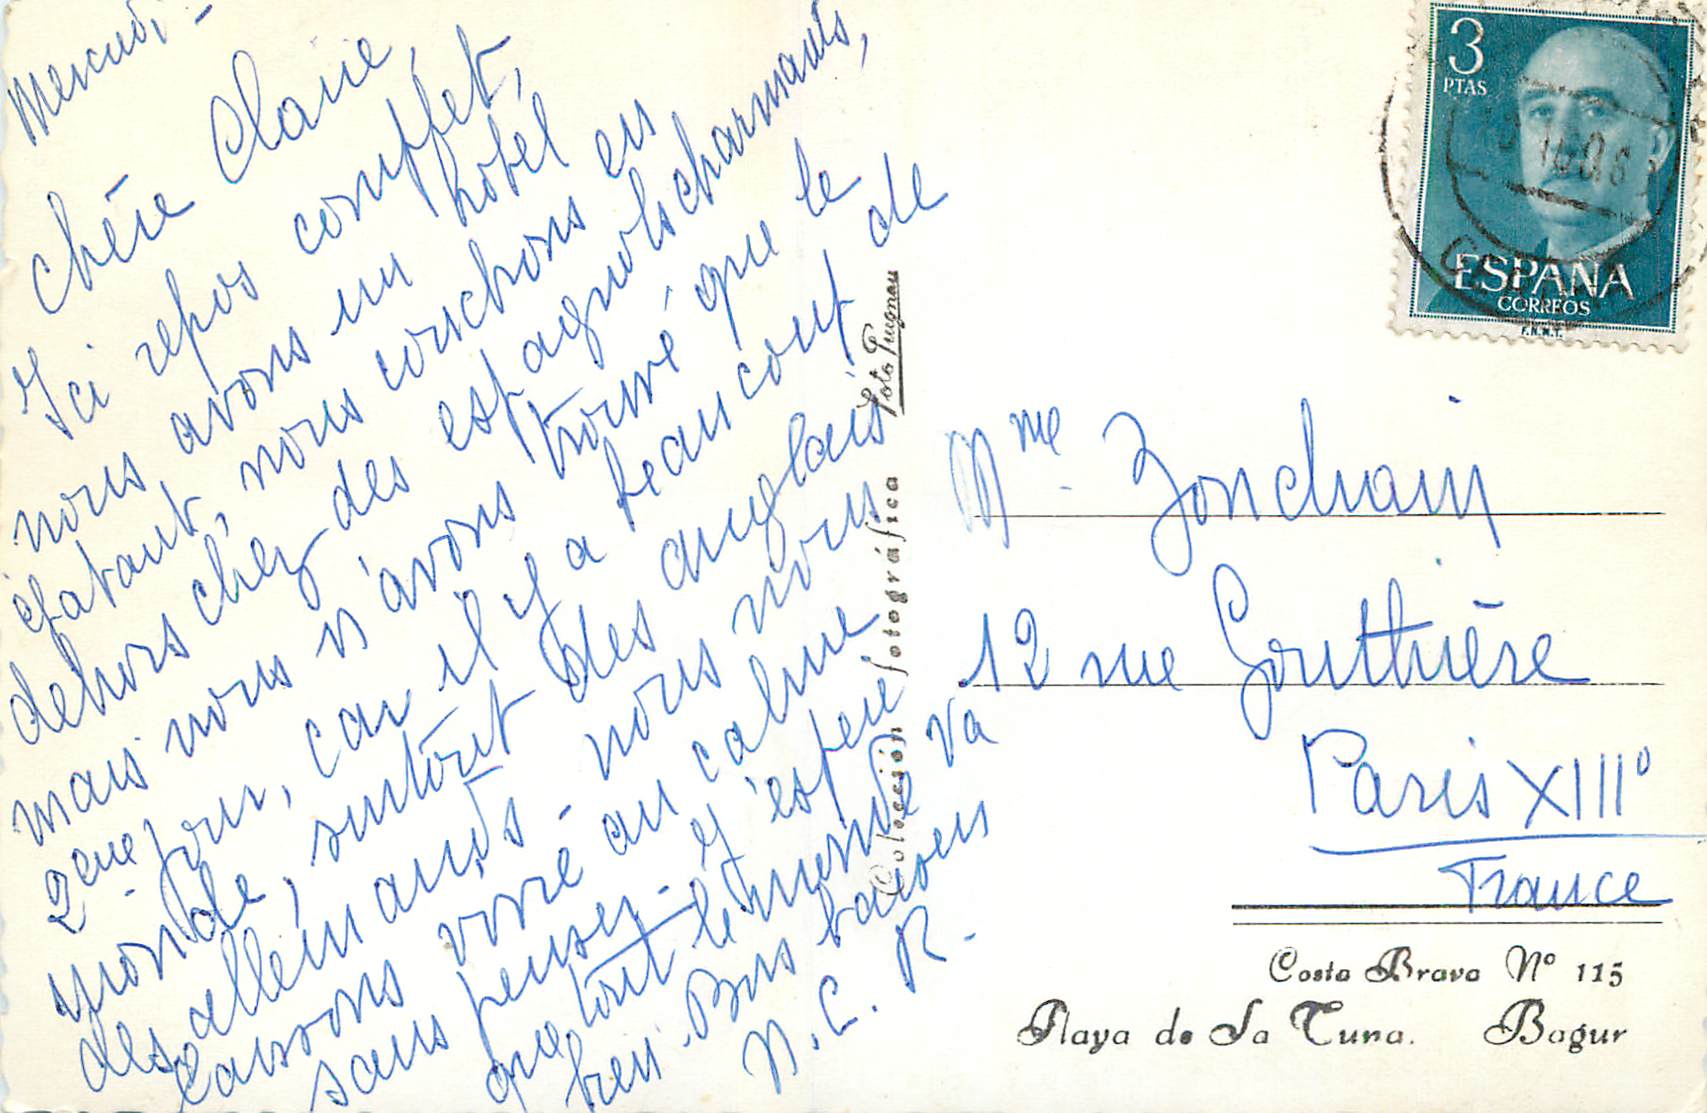 Mercredi -
Chère Claire,
Ici repos complet,
nous avons un hôtel
épatant, nous couchons en
dehors chez des espagnols charmants,
mais nous n'avons trouvé que le
2eme jour, car il y a beaucoup de
monde, surtout des anglais
des allemands - nous nous
laissons vivre au calme
sans penser - J'espère
que tout le monde va
bien. Bons baisers
N. C. R.
3
PTAS
ESPAÑA
CORREOS
F.N.M.T.
Colección fotográfica Foto Puignau
Mme Zonchain
12 rue Gouthière
Paris XIII°
France
Costa Brava Nº 115
Playa de Sa Tuna. Bagur